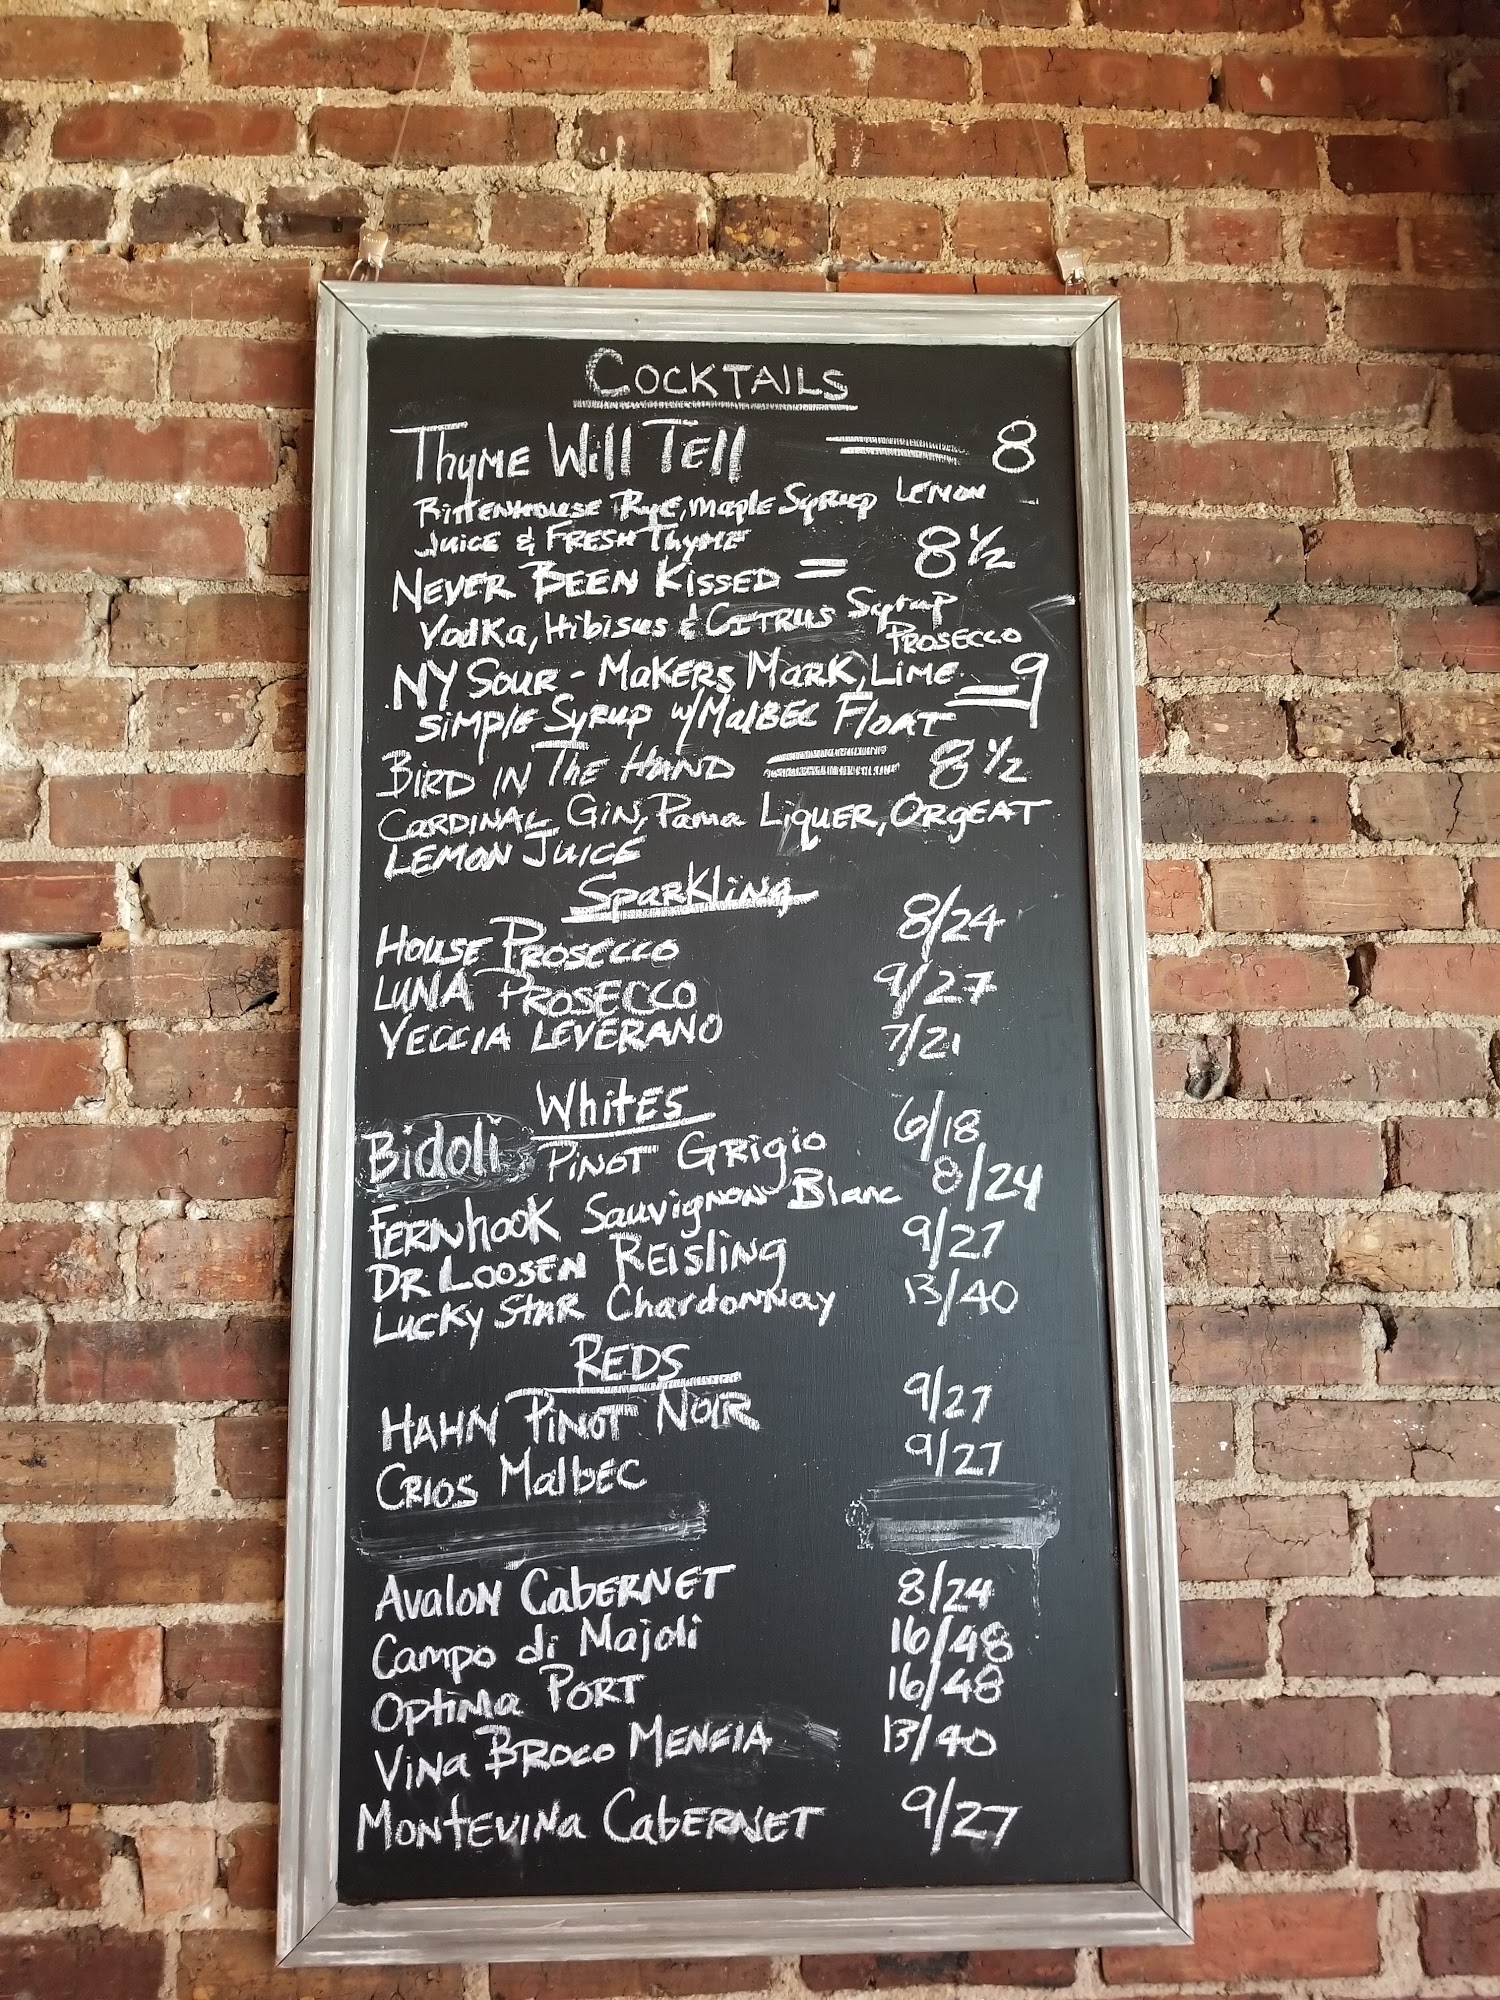 COCKTAILS
Thyme Will Tell 8
Rittenhouse Rye, maple Syrup Lemon
Juice & Fresh Thyme
Never Been Kissed = 8 1/2
Vodka, Hibisus & Citrus Syrup
Prosecco
NY Sour - Makers Mark, Lime 9
simple Syrup w/Malbec Float
Bird in The Hand 8 1/2
Cardinal Gin, Pama Liquer, Orgeat
Lemon Juice
Sparkling
House Prosecco 8/24
Luna Prosecco 9/27
Veccia Leverano 7/21
Whites
Bidoli Pinot Grigio 6/18
Fernhook Sauvignon Blanc 8/24
Dr Loosen Reisling 9/27
Lucky Star Chardonnay 13/40
Reds
Hahn Pinot Noir 9/27
Crios Malbec 9/27
Avalon Cabernet 8/24
Campo di Majoli 16/48
Optima Port 16/48
Vina Broco Mencia 13/40
Montevina Cabernet 9/27